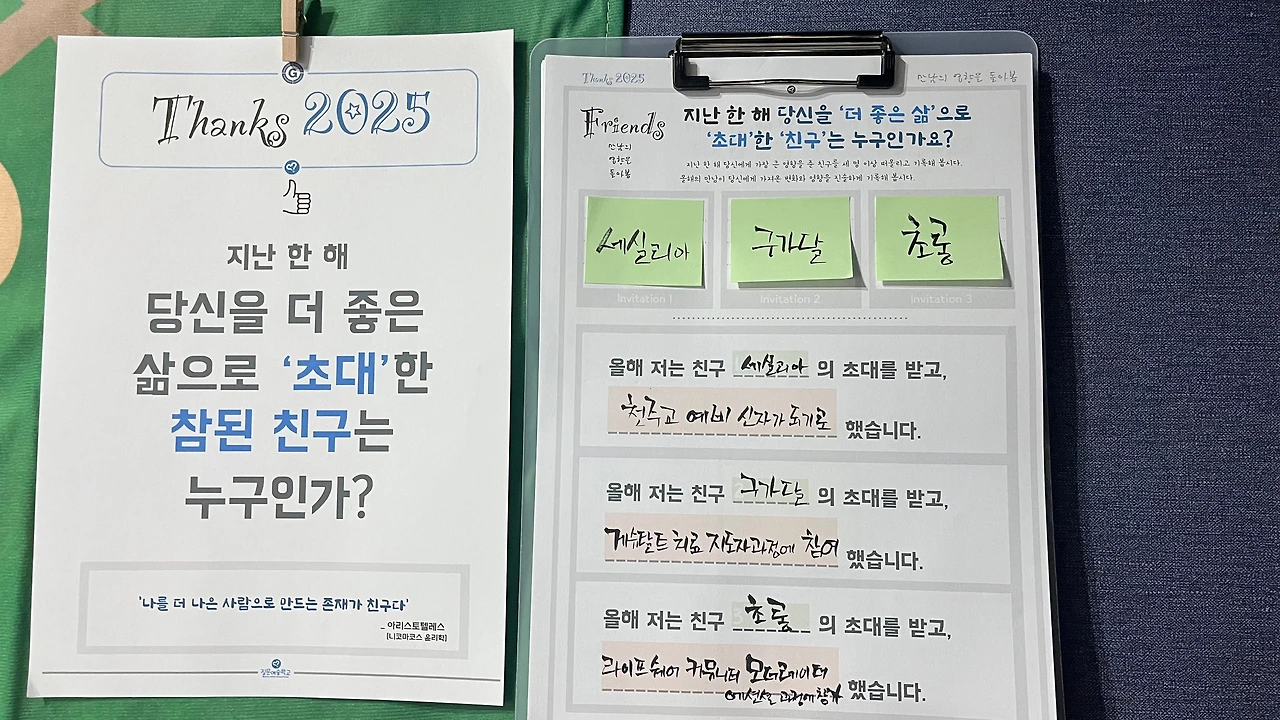 Thanks 2025
지난 한 해
당신을 더 좋은
삶으로 ‘초대’한
참된 친구는
누구인가?
'나를 더 나은 사람으로 만드는 존재가 친구다'
- 아리스토텔레스
[니코마코스 윤리학]
질문예술학교
Thanks 2025
만남의 영향은 돌아봄
Friends
만남의
영향은
돌아봄
지난 한 해 당신을 ‘더 좋은 삶’으로
‘초대’한 ‘친구’는 누구인가요?
지난 한 해 당신에게 가장 큰 영향을 준 친구를 세 명 이상 떠올리고 기록해 봅시다.
올해의 만남이 당신에게 가져온 변화와 영향을 진솔하게 기록해 봅시다.
세실리아
구가달
초롱
Invitation 1
Invitation 2
Invitation 3
올해 저는 친구 세실리아 의 초대를 받고,
천주교 예비 신자가 되기로 했습니다.
올해 저는 친구 구가달 의 초대를 받고,
게슈탈트 치료 지도자과정에 참여 했습니다.
올해 저는 친구 초롱 의 초대를 받고,
라이프쉐어 커뮤니티 모더레이터
에센셜 과정에 참가 했습니다.